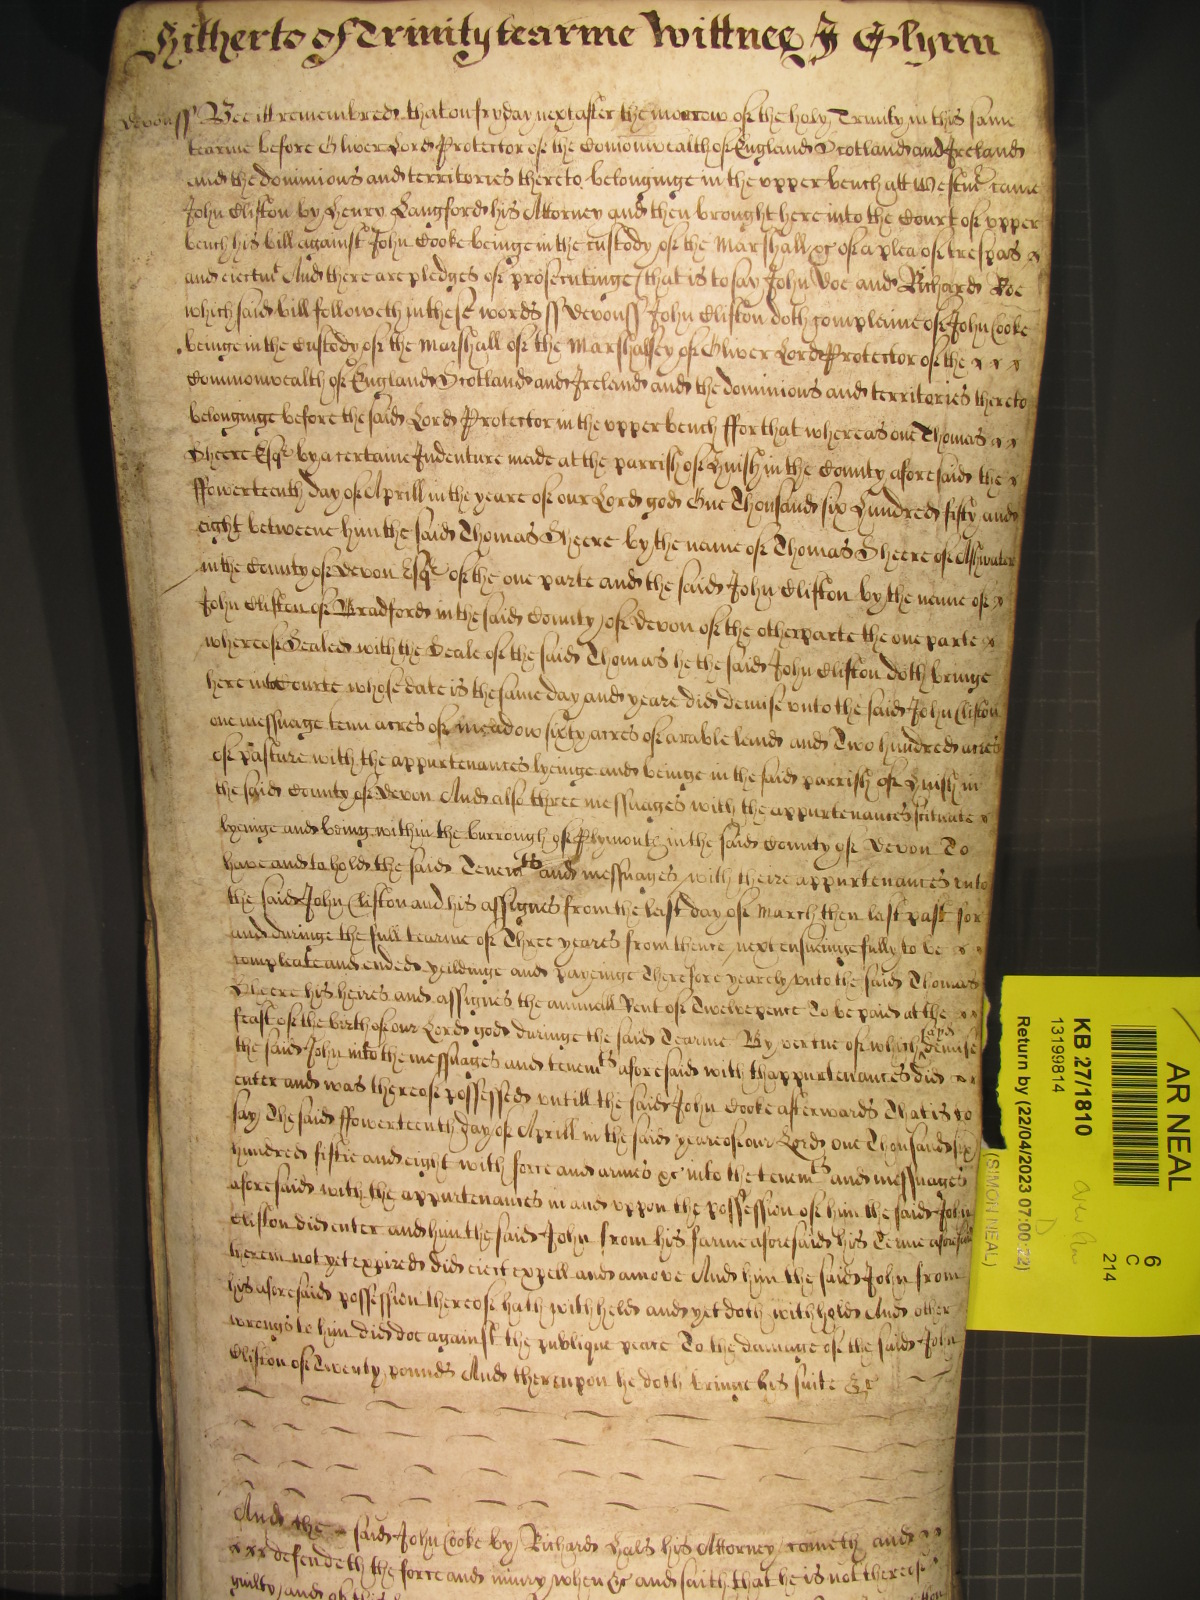 Hitherto of Trinity tearme Wittnes J Glynn
Devonss Bee itt remembred that on fryday next after the morrow of the holy Trinity in this same
tearme before Oliver Lord Protector of the Comonwealth of England Scotland and Ireland
and the dominions and territories thereto belonginge in the vpper bench att Westmr came
John Clifton by Henry Langford his Attorney and then brought here into the Court of vpper
bench his bill against John Cooke beinge in the custody of the Marshall &c of a plea of trespas
and eiectmt And there are pledges of prosecutinge (that is to say John Doe and Richard Roe
which said bill followeth in these words ss Devonss John Clifton doth complaine of John Cooke
beinge in the Custody of the Marshall of the Marshalsey of Oliver Lord Protector of the
Commonwealth of England Scotland and Ireland and the dominions and territories thereto
belonginge before the said Lord Protector in the vpper bench ffor that whereas one Thomas
Sheere Esqr by a certaine Indenture made at the parrish of in the County aforesaid the
ffowerteenth day of Aprill in the yeare of our Lord god One Thousand six Hundred fifty and
eight betweene him the said Thomas Sheere by the name of Thomas Sheere of Ashwater
in the County of Devon Esqr of the one parte and the said John Clifton by the name of
John Clifton of Bradford in the said County of Devon of the other parte the one parte
whereof Sealed with the Seale of the said Thomas he the said John Clifton doth bringe
here into Courte whose date is the same day and yeare did demise vnto the said John Clifton
one messuage tenn acres of meadow sixty acres of arable land and Two hundred acres
of pasture with the appurtenances lyeinge and beinge in the said parrish of in
the said County of Devon And also three messuages with the appurtenances scituate
lyeinge and being within the burrough of Plymouth in the said County of Devon To
have and to hold the said Tenemts and messuages with theire appurtenances vnto
the said John Clifton and his assignes from the last day of March then last past for
and duringe the full tearme of Three yeares from thence next ensueinge fully to be
compleate and ended yeildinge and payeinge Therefore yearely vnto the said Thomas
Sheere his heires and assignes the annuall Rent of Twelve pence To be paid at the
feast of the birth of our Lord god duringe the said Tearme By vertue of which said demise
the said John into the messuages and tenemts aforesaid with thappurtenances did
enter and was thereof possessed vntill the said John Cooke afterwards That is to
say The said ffowerteenth day of Aprill in the said yeare of our Lord one Thousand six
hundred fiftie and eight with force and armes &c into the tenemts and messuages
aforesaid with the appurtenances in and vppon the possession of him the said John
Clifton did enter and him the said John from his farme aforesaid his Terme aforesaid
therein not yet expired did eiect expell and amove And him the said John from
his aforesaid possession thereof hath withheld and yet doth withhold And other
wrongs to him did doe against the publique peace To the damage of the said John
Clifton of Twenty pounds And thereupon he doth bringe his suite &c
And the said John Cooke by Richard Hals his Attorney cometh and
defendeth the force and iniury when &c and saith that he is not thereof
guilty and of this
AR NEAL
6
C
214
KB 27/1810
13199814
Return by (22/04/2023 07:00:22)
(SIMON NEAL)